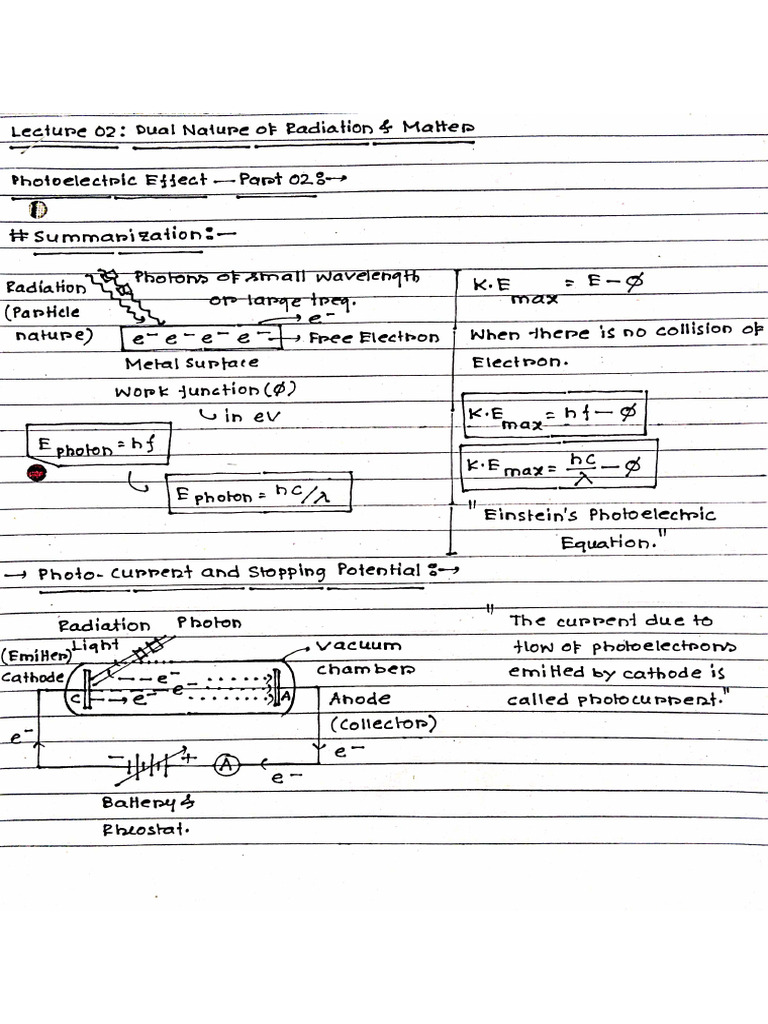 Lecture 02: Dual Nature of Radiation & Matter
Photoelectric Effect — Part 02:→
# Summarization:—
Radiation
(Particle
nature)
Photons of small wavelength
or large freq.
e⁻
e⁻ e⁻ e⁻ e⁻
→ Free Electron
Metal Surface
Work function (ϕ)
in eV
E photon = hf
E photon = hc/λ
K.E max = E − ϕ
When there is no collision of
Electron.
K.E max = hf − ϕ
K.E max = hc/λ − ϕ
"Einstein's Photoelectric
Equation."
→ Photo-Current and Stopping Potential:→
Radiation Photon
Light
(Emitter)
Cathode
C
e⁻
e⁻
e⁻
A
Vacuum
chamber
Anode
(Collector)
e⁻
e⁻
− +
A
e⁻
Battery &
Rheostat.
"The current due to
flow of photoelectrons
emitted by cathode is
called photocurrent."